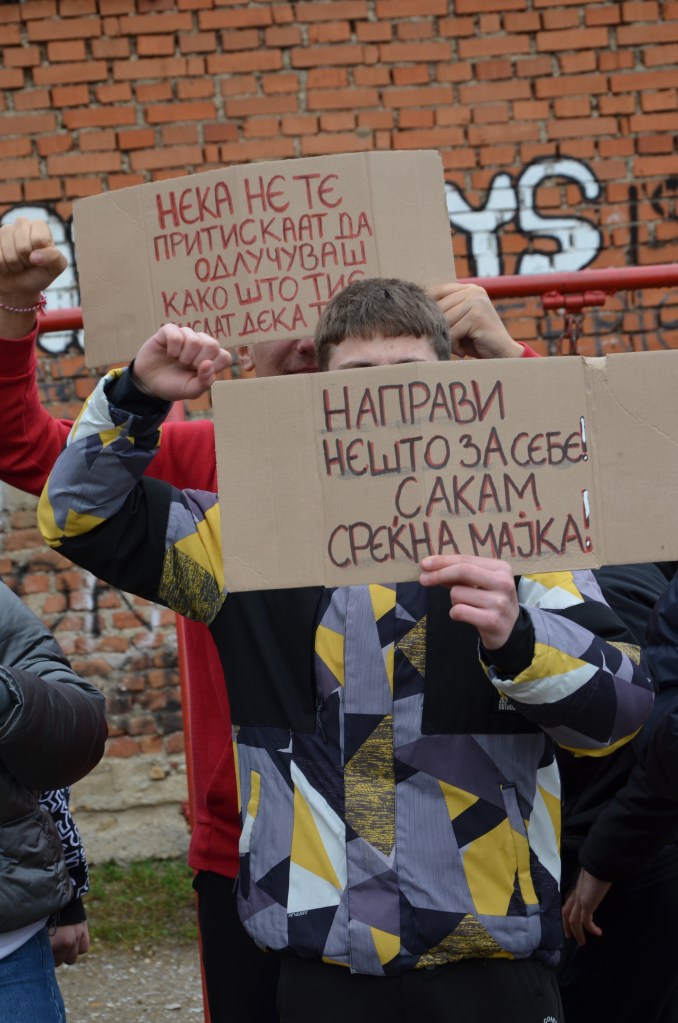 НЕКА НЕ ТЕ
ПРИТИСКААТ ДА
ОДЛУЧУВАШ
КАКО ШТО ТИЕ
ДЕКА
НАПРАВИ
НЕШТО ЗА СЕБЕ!
САКАМ
СРЕЌНА МАЈКА!
YS